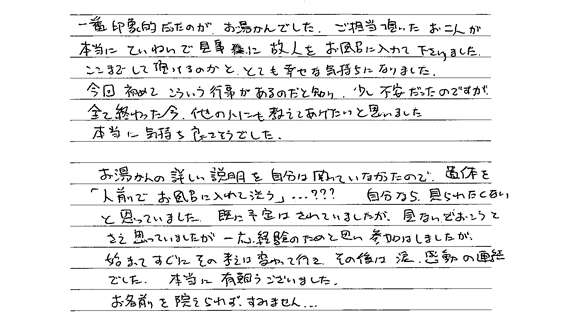 一番印象的だったのが、お湯かんでした。ご担当頂いたお二人が
本当にていねいで見事に故人をお風呂に入れて下さいました。
ここまでして頂けるのかと、とても幸せな気持ちになりました。
今回初めてこういう行事があるのだと知り、少し不安だったのですが
全て終わった今、他の人にも教えてあげたいと思いました
本当に気持ち良さそうでした。
お湯かんの詳しい説明を自分は聞いていなかったので、遺体を
「人前でお風呂に入れて洗う」…??? 自分なら、見られたくない
と思っていました。既に予定はされていましたが、見ないでおこうと
さえ思っていましたが一応経験のためと思い参加はしましたが、
始まってすぐにその考えは変わって行き、その後は涙、感動の連続
でした。本当に有難うございました。
お名前を られず、すみません…